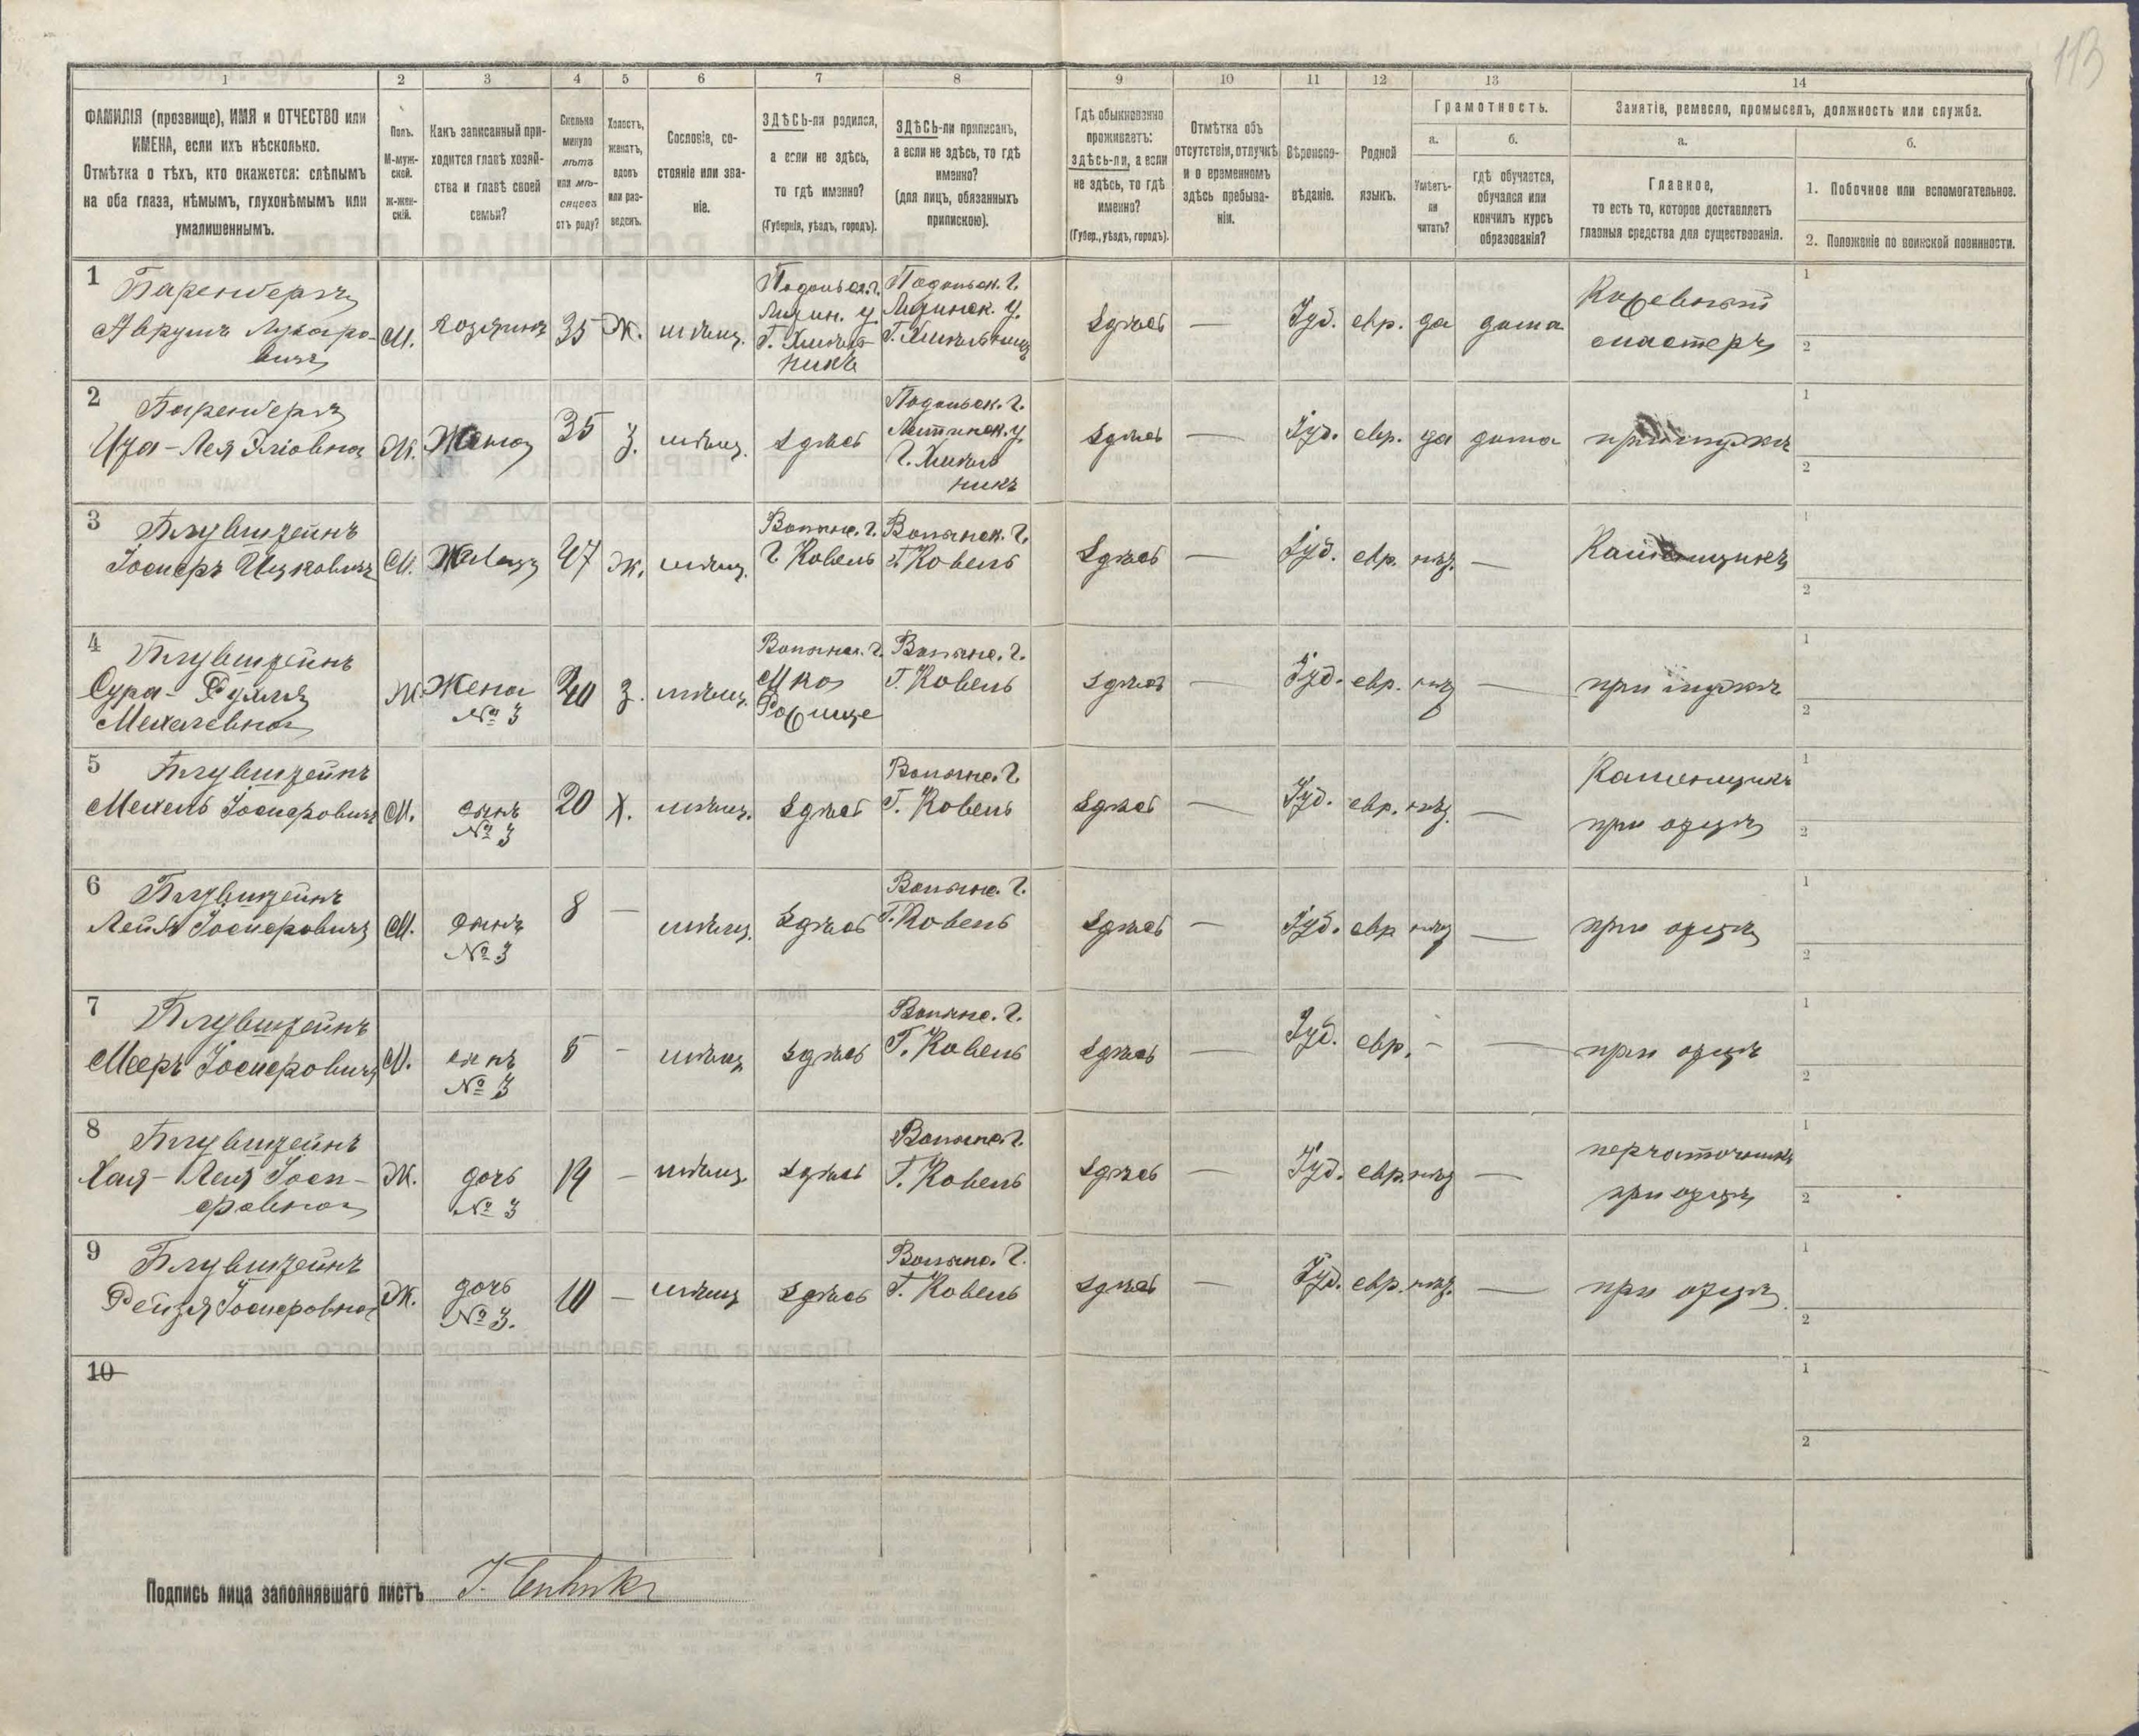 113
1
2
3
4
5
6
7
8
9
10
11
12
13
14
ФАМИЛІЯ (прозвище), ИМЯ и ОТЧЕСТВО или
ИМЕНА, если ихъ нѣсколько.
Отмѣтка о тѣхъ, кто окажется: слѣпымъ
на оба глаза, нѣмымъ, глухонѣмымъ или
умалишеннымъ.
Полъ.
М-муж-
ской.
ж-жен-
скій.
Какъ записанный при-
ходится главѣ хозяй-
ства и главѣ своей
семьи?
Сколько
минуло
лѣтъ
или мѣ-
сяцевъ
отъ роду?
Холостъ,
женатъ,
вдовъ
или раз-
веденъ.
Сословіе, со-
стояніе или зва-
ніе.
ЗДѢСЬ-ли родился,
а если не здѣсь,
то гдѣ именно?
(Губернія, уѣздъ, городъ).
ЗДѢСЬ-ли приписанъ,
а если не здѣсь, то гдѣ
именно?
(для лицъ, обязанныхъ
припискою).
Гдѣ обыкновенно
проживаетъ:
здѣсь-ли, а если
не здѣсь, то гдѣ
именно?
(Губер., уѣздъ, городъ).
Отмѣтка объ
отсутствіи, отлучкѣ
и о временномъ
здѣсь пребыва-
ніи.
Вѣроиспо-
вѣданіе.
Родной
языкъ.
Грамотность.
а.
Умѣетъ-
ли
читать?
б.
гдѣ обучается,
обучался или
кончилъ курсъ
образованія?
Занятіе, ремесло, промыселъ, должность или служба.
а.
Главное,
то есть то, которое доставляетъ
главныя средства для существованія.
б.
1. Побочное или вспомогательное.
2. Положеніе по воинской повинности.
1
Баренберг
Аврумъ
М.
хозяинъ
35
Ж.
мѣщ.
Подольск. г.
Г. Хмѣль-
никъ
Подольск. г.
Г. Хмѣльникъ
Здѣсь
—
Іуд.
евр.
да
дома
мастеръ
1
2
2
Баренберг
Лея
Ж.
Жена
35
З.
мѣщ.
Здѣсь
Подольск. г.
Литинск. у.
Г. Хмѣль
никъ
Здѣсь
—
Іуд.
евр.
да
дома
при мужѣ
1
2
3
Блувштейнъ
Іосифъ Ицковичъ
М.
Жилец
47
Ж.
мѣщ.
Волынс. г.
г. Ковель
Волынск. г.
г. Ковель
Здѣсь
—
Іуд.
евр.
нѣт.
—
1
2
4
Блувштейнъ
Сура-
Ж.
Жена
№ 3
40
З.
мѣщ.
Волынск. г.
М-ко
Рожище
Волынс. г.
Г. Ковель
Здѣсь
—
Іуд.
евр.
нѣт
—
при мужѣ
1
2
5
Блувштейнъ
Мехель Іосифовичъ
М.
сынъ
№ 3
20
Х.
мѣщ.
Здѣсь
Волынс. г.
Г. Ковель
Здѣсь
—
Іуд.
евр.
нѣт.
—
при отцѣ
1
2
6
Блувштейнъ
Іосифовичъ
М.
сынъ
№ 3
8
—
мѣщ.
Здѣсь
Волынс. г.
Г. Ковель
Здѣсь
—
Іуд.
евр
нѣт
—
при отцѣ
1
2
7
Блувштейнъ
Мееръ Іосифовичъ
М.
сынъ
№ 3
5
—
мѣщ
Здѣсь
Волынс. г.
Г. Ковель
Здѣсь
—
Іуд.
евр.
—
—
при отцѣ
1
2
8
Блувштейнъ
Хая-Лея Іоси-
фовна
Ж.
дочь
№ 3
—
мѣщ.
Здѣсь
Волынс. г.
Г. Ковель
Здѣсь
—
Іуд.
евр.
нѣт
—
при отцѣ
1
2
9
Блувштейнъ
Рейзя Іосифовна
Ж.
дочь
№ 3.
10
—
мѣщ
Здѣсь
Волынс. г.
Г. Ковель
Здѣсь
—
Іуд.
евр.
нѣт.
—
при отцѣ
1
2
10
1
2
Подпись лица заполнявшаго листъ